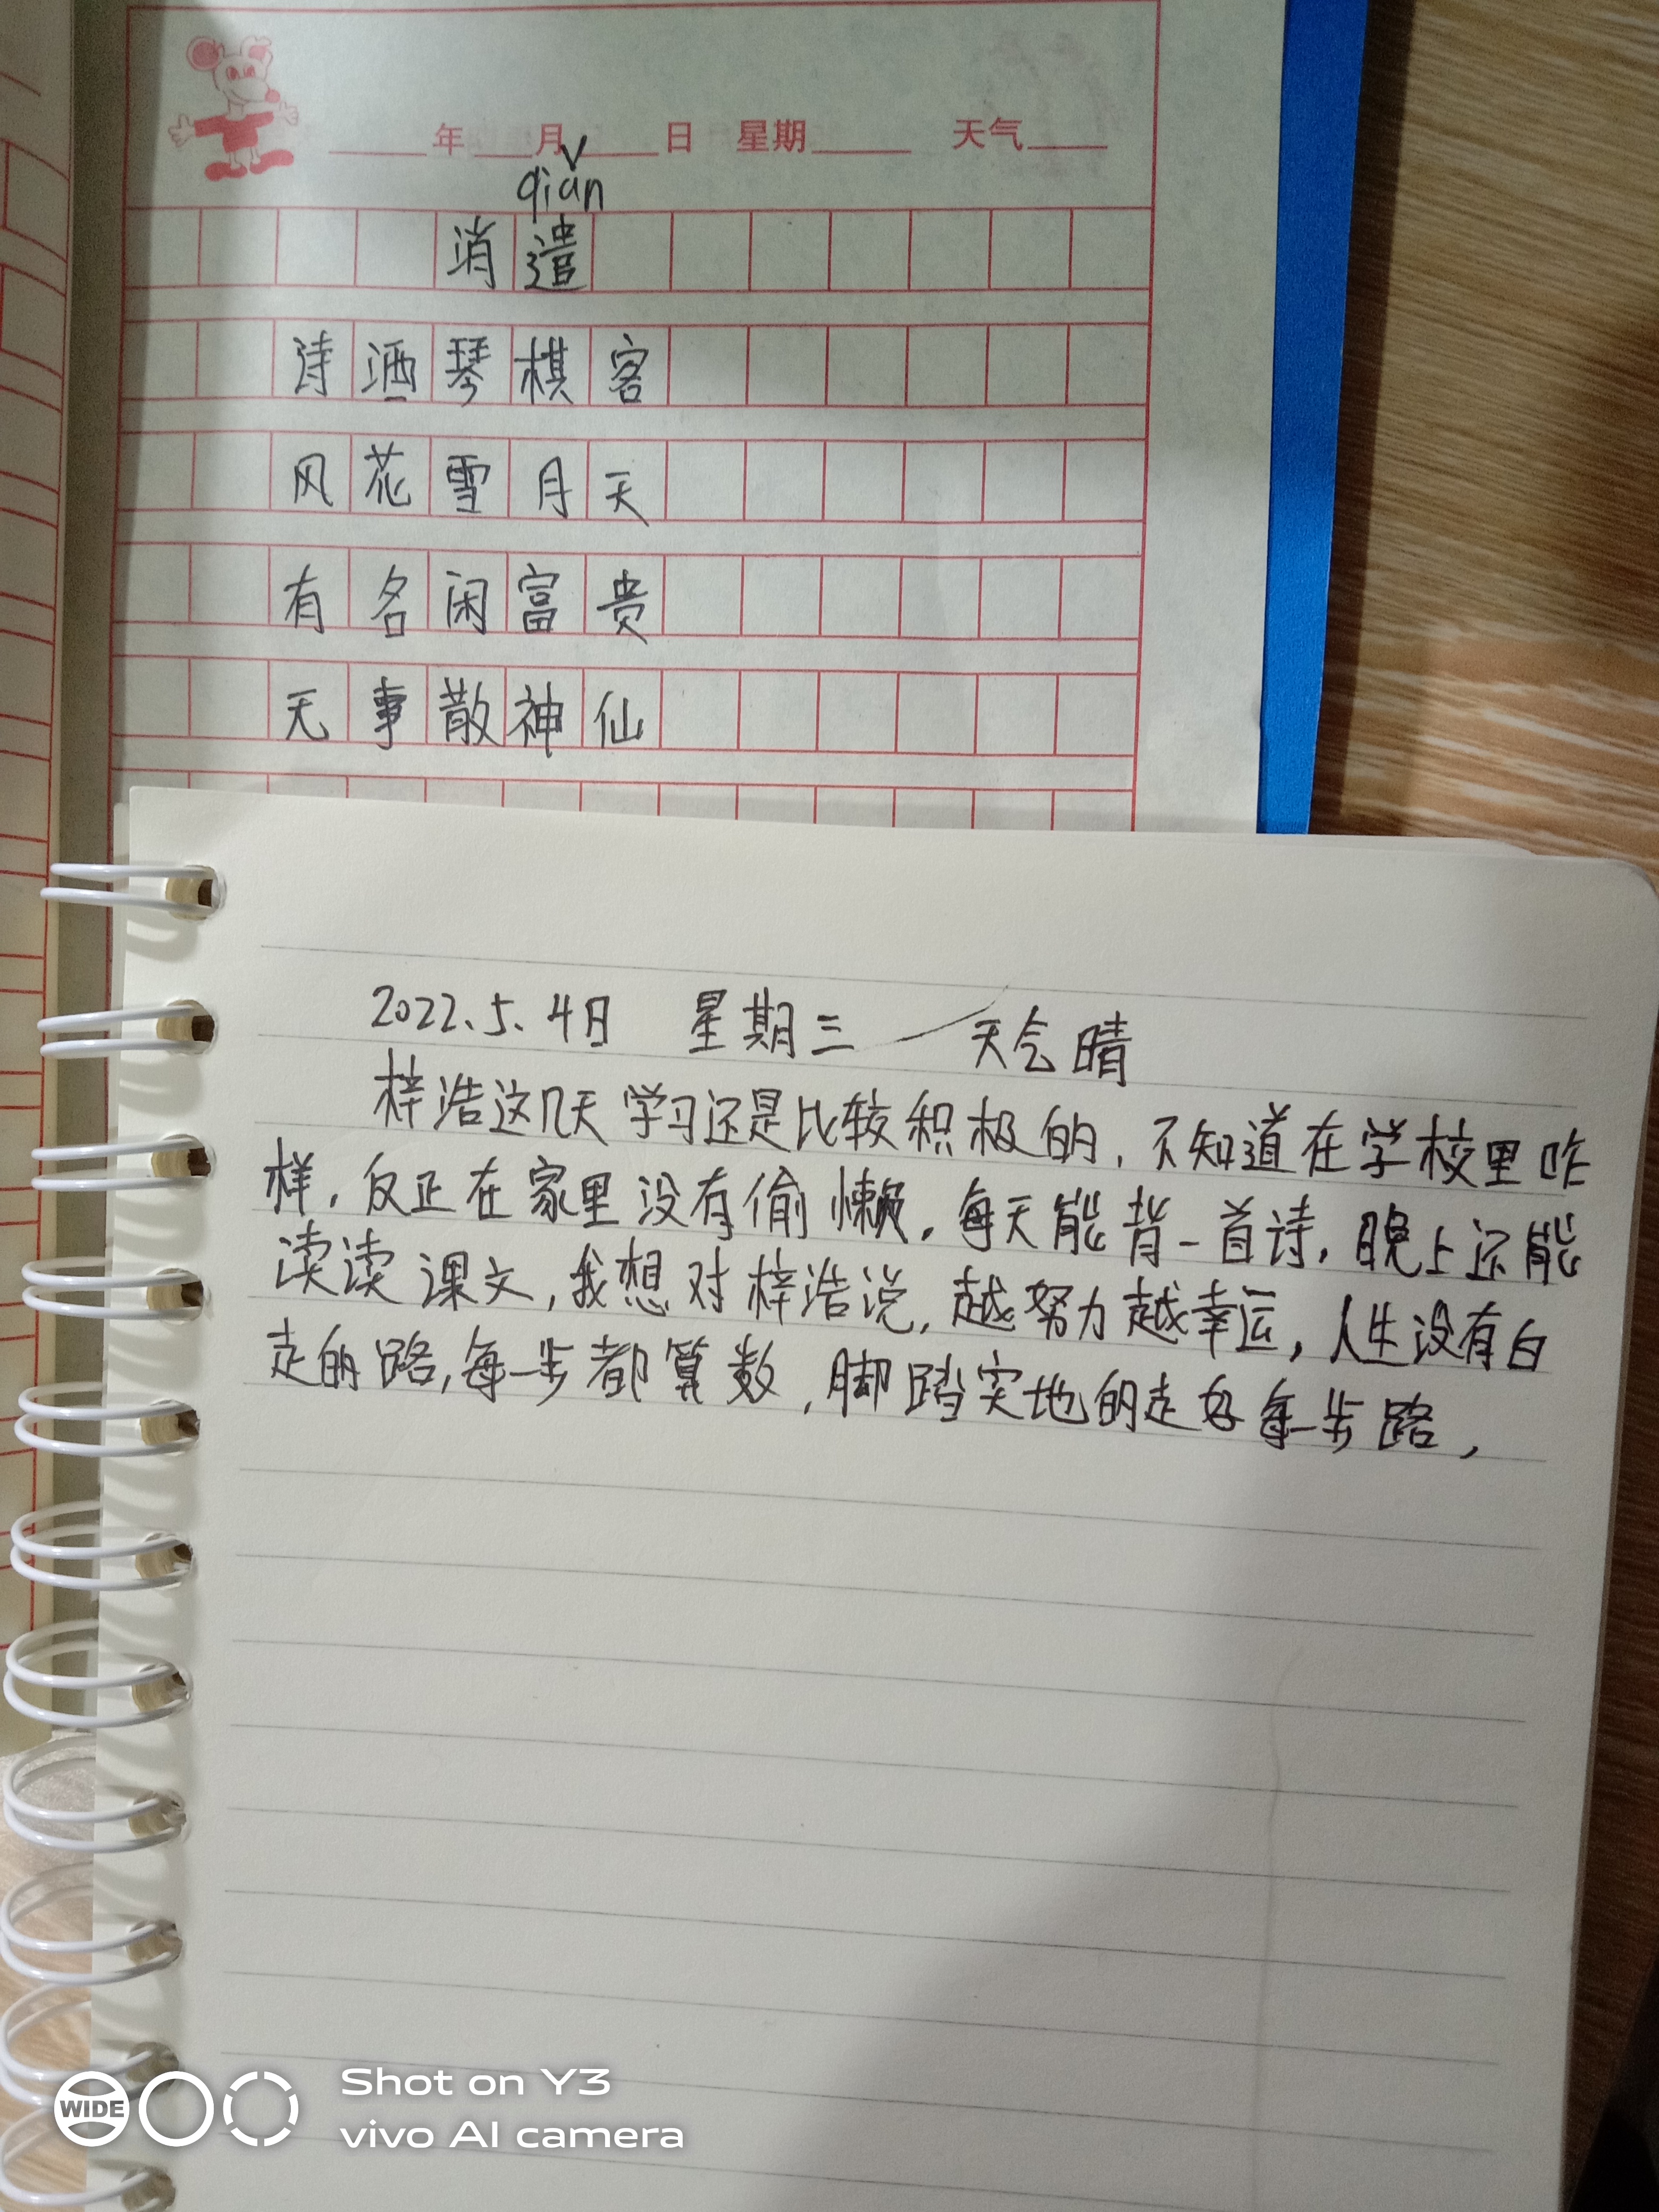 年 月 日 星期 天气
qiǎn
消遣
诗酒琴棋客
风花雪月天
有名闲富贵
无事散神仙
2022.5.4日 星期三 天气晴
梓浩这几天学习还是比较积极的，不知道在学校里咋
样，反正在家里没有偷懒，每天能背一首诗，晚上还能
读读课文，我想对梓浩说，越努力越幸运，人生没有白
走的路，每一步都算数，脚踏实地的走好每一步路，
WIDE
Shot on Y3
vivo AI camera